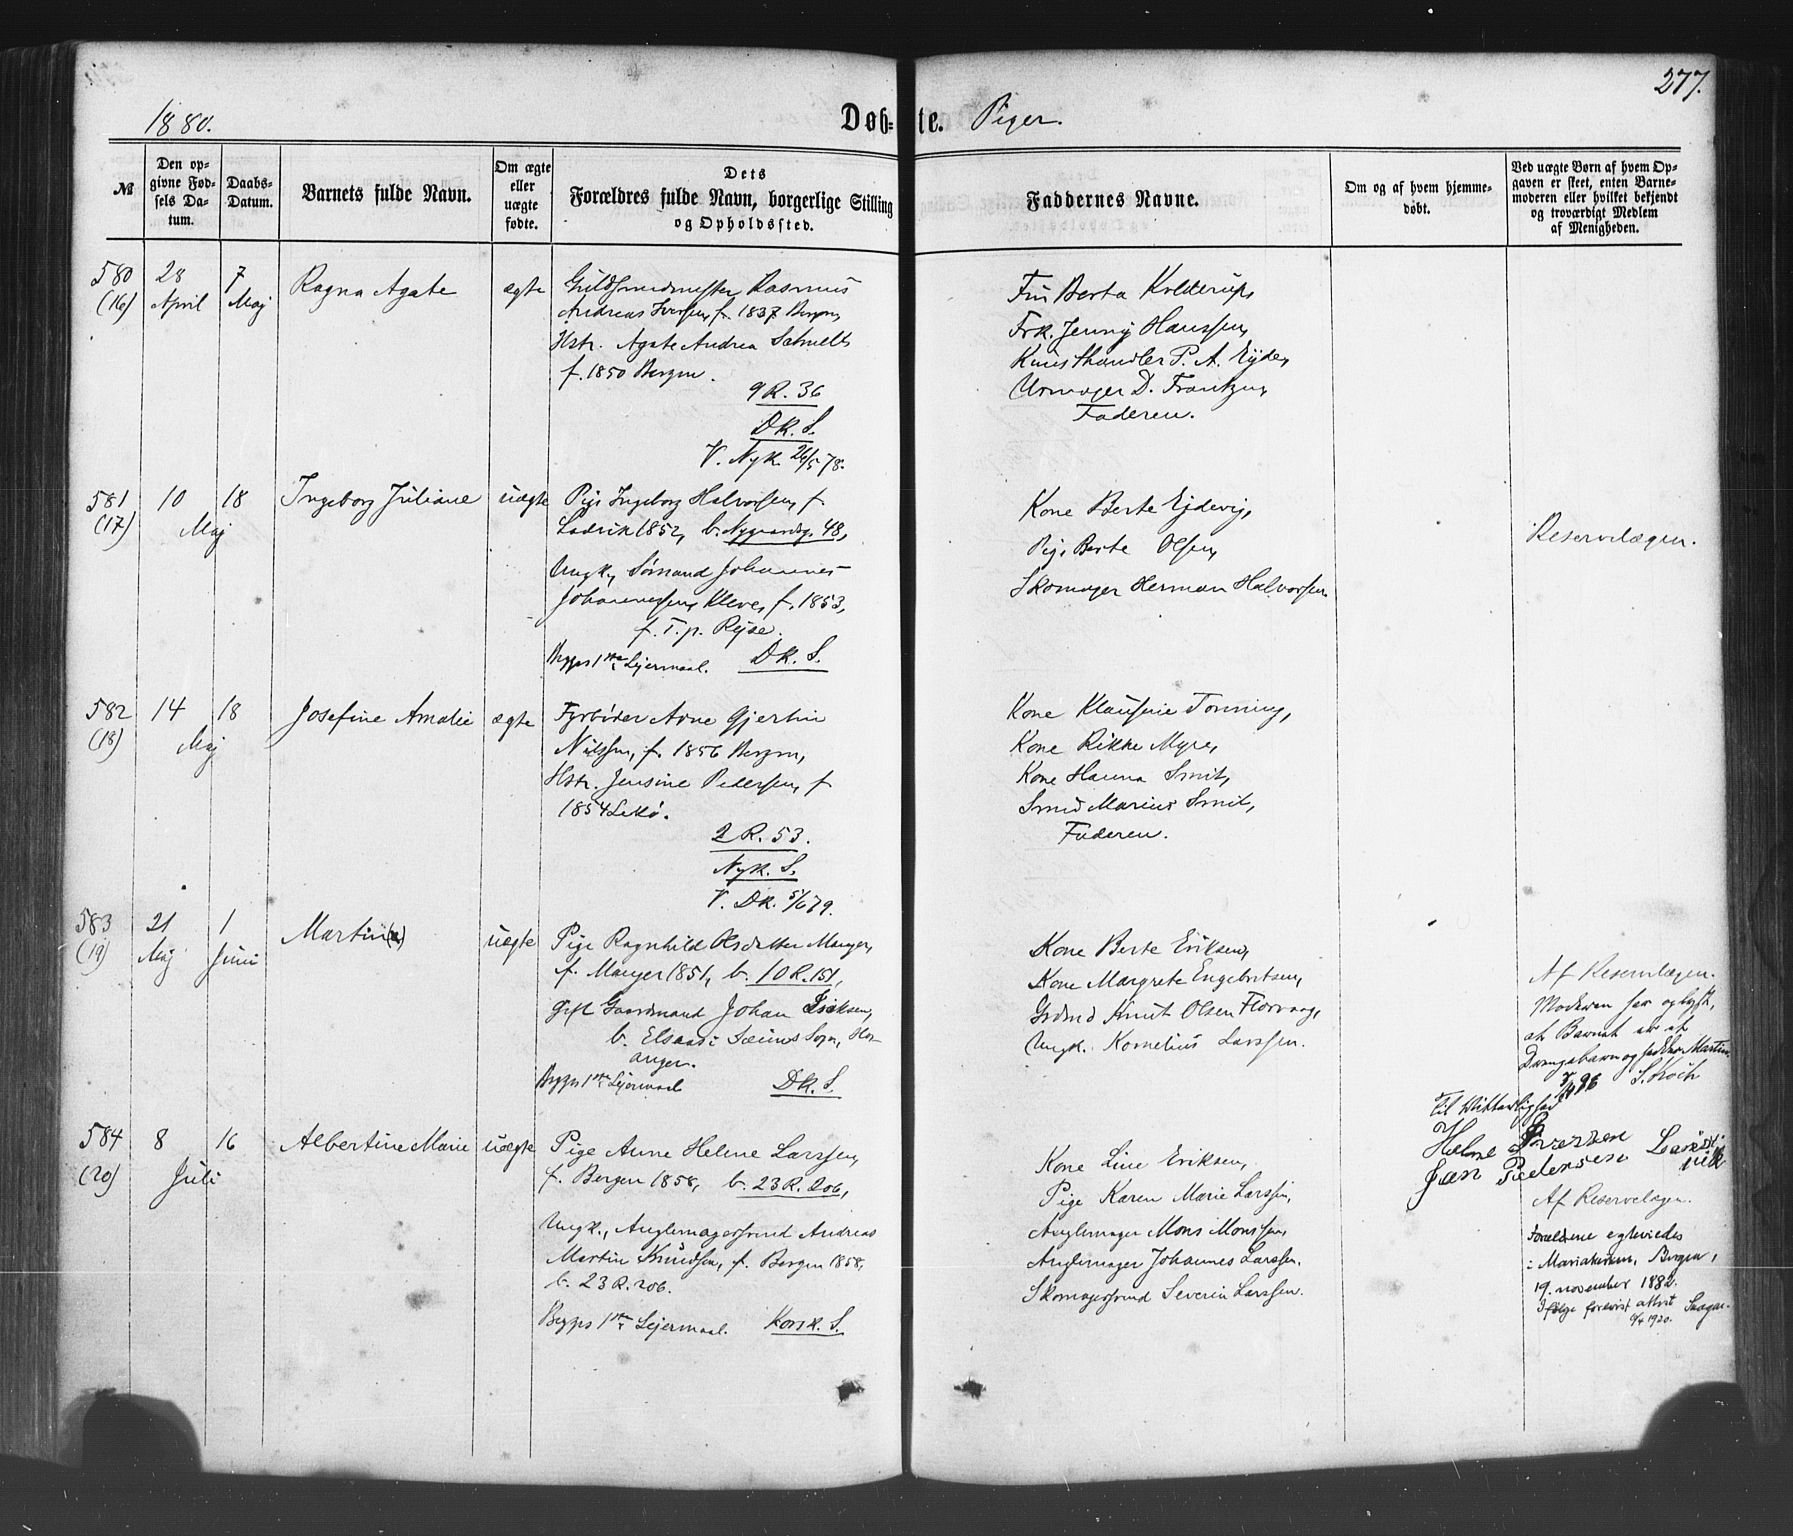 277.
1880.
Døb-te. Piger.
№
Den opgivne Fødsels Datum.
Daabs-Datum.
Barnets fulde Navn.
Om ægte eller uægte fødte.
Dets Forældres fulde Navn, borgerlige Stilling og Opholdssted.
Faddernes Navne.
Om og af hvem hjemmedøbt.
Ved uægte Børn af hvem Opgaven er skeet, enten Barnemoderen eller hvilket bekjendt og troværdigt Medlem af Menigheden.
580 (16)
28 April
7 Maj
Ragna Agate
ægte
Guldsmedmester Rasmus
Andreas Iversen, f. 1837 Bergen,
Hstr. Agate Andrea
f. 1850 Bergen.
9 R. 36
DK. S.
V. Nyk. 26/5 78.
Fru Berta Kolderup,
Frk. Jenny Hanssen,
Kunsthandler P. A. Eide,
Urmager D. Frantzen,
Faderen.
581 (17)
10
18
Maj
Ingeborg Juliane
uægte
Pige Ingeborg Halvorsen, f.
Ladvik 1852, b. Nygaardsg. 48,
Ungk. Sømand Johannes
Johannessen, Kleve, f. 1853,
f. T. p. Rejse.
Begges 1ste Lejermaal. DK. S.
Kone Berte Ejdevig,
Pige Berte Olsen,
Skomager Herman Halvorsen.
Reservelægen.
582 (18)
14
18
Maj
Josefine Amalie
ægte
Fyrbøder Arne Gjertin
Nilssen, f. 1856 Bergen,
Hstr. Jensine Pedersen, f.
1854 Lekø.
2 R. 53.
Nyk. S.
V. DK. 5/6 79.
Kone Klausine Tonning,
Kone Rikke Myre,
Kone Hanna Smit,
Smed Marius Smit,
Faderen.
583 (19)
21 Maj
1 Juni
Martin(a)
uægte
Pige Ragnhild Olsdatter Manger,
f. Manger 1851, b. 10 R. 151,
Gift Gaardmand Johan Eriksen,
b. Elsaas i Sæims Sogn, Hosanger.
Begges 1ste Lejermaal DK. S.
Kone Berte Eriksen,
Kone Margrete Engebritsen,
Grdmd Knut Olsen Florvaag,
Ungk. Kornelius Larssen.
Af Reservelægen.
Moderen har oplyst,
at Barnet er et
Drengebarn og heder Martin
96 S. Koch
Til Vitterlighed
Jan Pedersen
584 (20)
8
16
Juli
Albertine Marie
uægte
Pige Anne Helene Larssen,
f. Bergen 1858, b. 23 R. 206,
Ungk., Anglemagersvend Andreas
Martin Knudsen, f. Bergen 1858,
b. 23 R. 206.
Begges 1ste Lejermaal. Korsk. S.
Kone Line Eriksen,
Pige Karen Marie Larssen,
Anglemager Mons Monssen,
Anglemager Johannes Larssen.
Skomagersvend Severin Larssen.
Af Reservelægen.
Forældrene egteviedes
i Mariakirken, Bergen,
19. november 1882.
Ifølge forevist attest
1920.